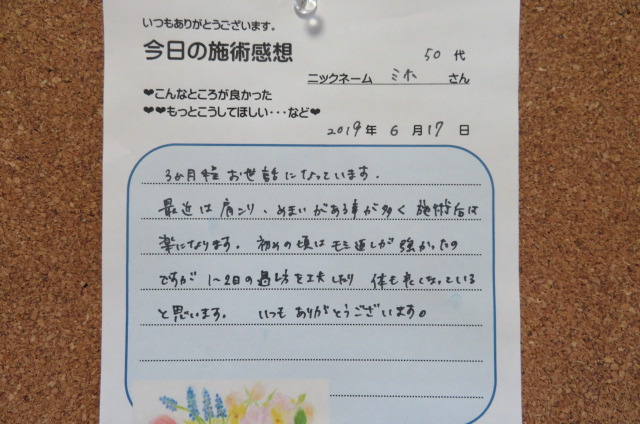 いつもありがとうございます。
今日の施術感想
50代
ニックネーム ミホ さん
❤こんなところが良かった
❤❤もっとこうしてほしい・・・など❤
2019年 6月17日
3ヶ月程お世話になっています。
最近は肩こり、めまいがある事が多く施術后は
楽になります。初めの頃はモミ返しが強かったの
ですが1~2日の過し方を工夫したり 体も良くなっている
と思います。 いつもありがとうございます。